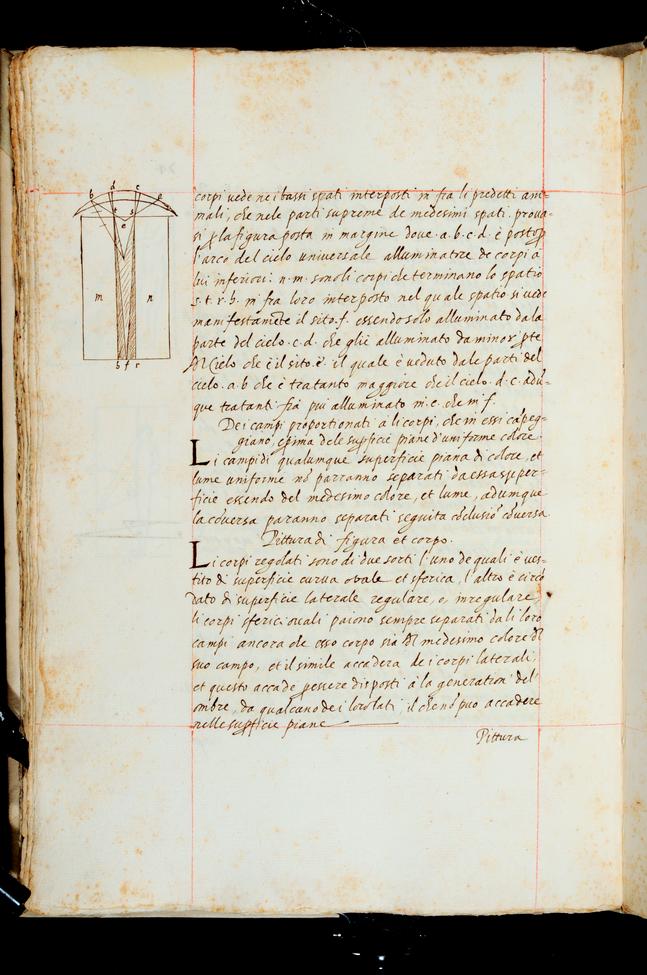 b d c a
corpi uede nei bassi spati interposti in fra li predetti ani=
mali, che nele parti supreme de medesimi spati. proua=
si p la figura posta in margine doue .a.b.c.d. è posto p
l'arco del cielo uniuersale alluminatore de corpi à
lui inferiori: n.m. sono li corpi che terminano lo spatio
s.t.r.h. in fra loro interposto nel quale spatio si uede
manifestamēte il sito .f. essendo solo alluminato da la
parte del cielo .c.d. che gliè alluminato da minor pte
del cielo che è il sito .e. il quale è ueduto dale parti del
cielo .a.b che è tratanto maggiore che il cielo .d.c. adū=
que tratanti fia piu alluminato in .e. che in .f.
De i campi proportionati à li corpi, che in essi cāpeg=
giano, e prima dele supficie piane d'uniforme colore.
Li campi di qualumque superficie piana di colore, et
lume uniforme nō parranno separati da essa super=
ficie essendo del medesimo colore, et lume, adumque
la cōuersa paranno separati seguita cōclusiō cōuersa
Pittura di figura et corpo.
Li corpi regolati sono di due sorti l'uno de quali è ues=
tito di superficie curua ouale et sferica, l'altro è circō
dato di superficie laterale regulare, o, inregulare
li corpi sferici ouali paiono sempre separati da li loro
campi ancora che esso corpo sia del medesimo colore del
suo campo, et il simile accadera de i corpi laterali,
et questo accade p essere disposti à la generation' del'
ombre, da qualcano de i loro lati il che nō puo accadere
nelle supficie piane
Pittura
m n
e
s f r